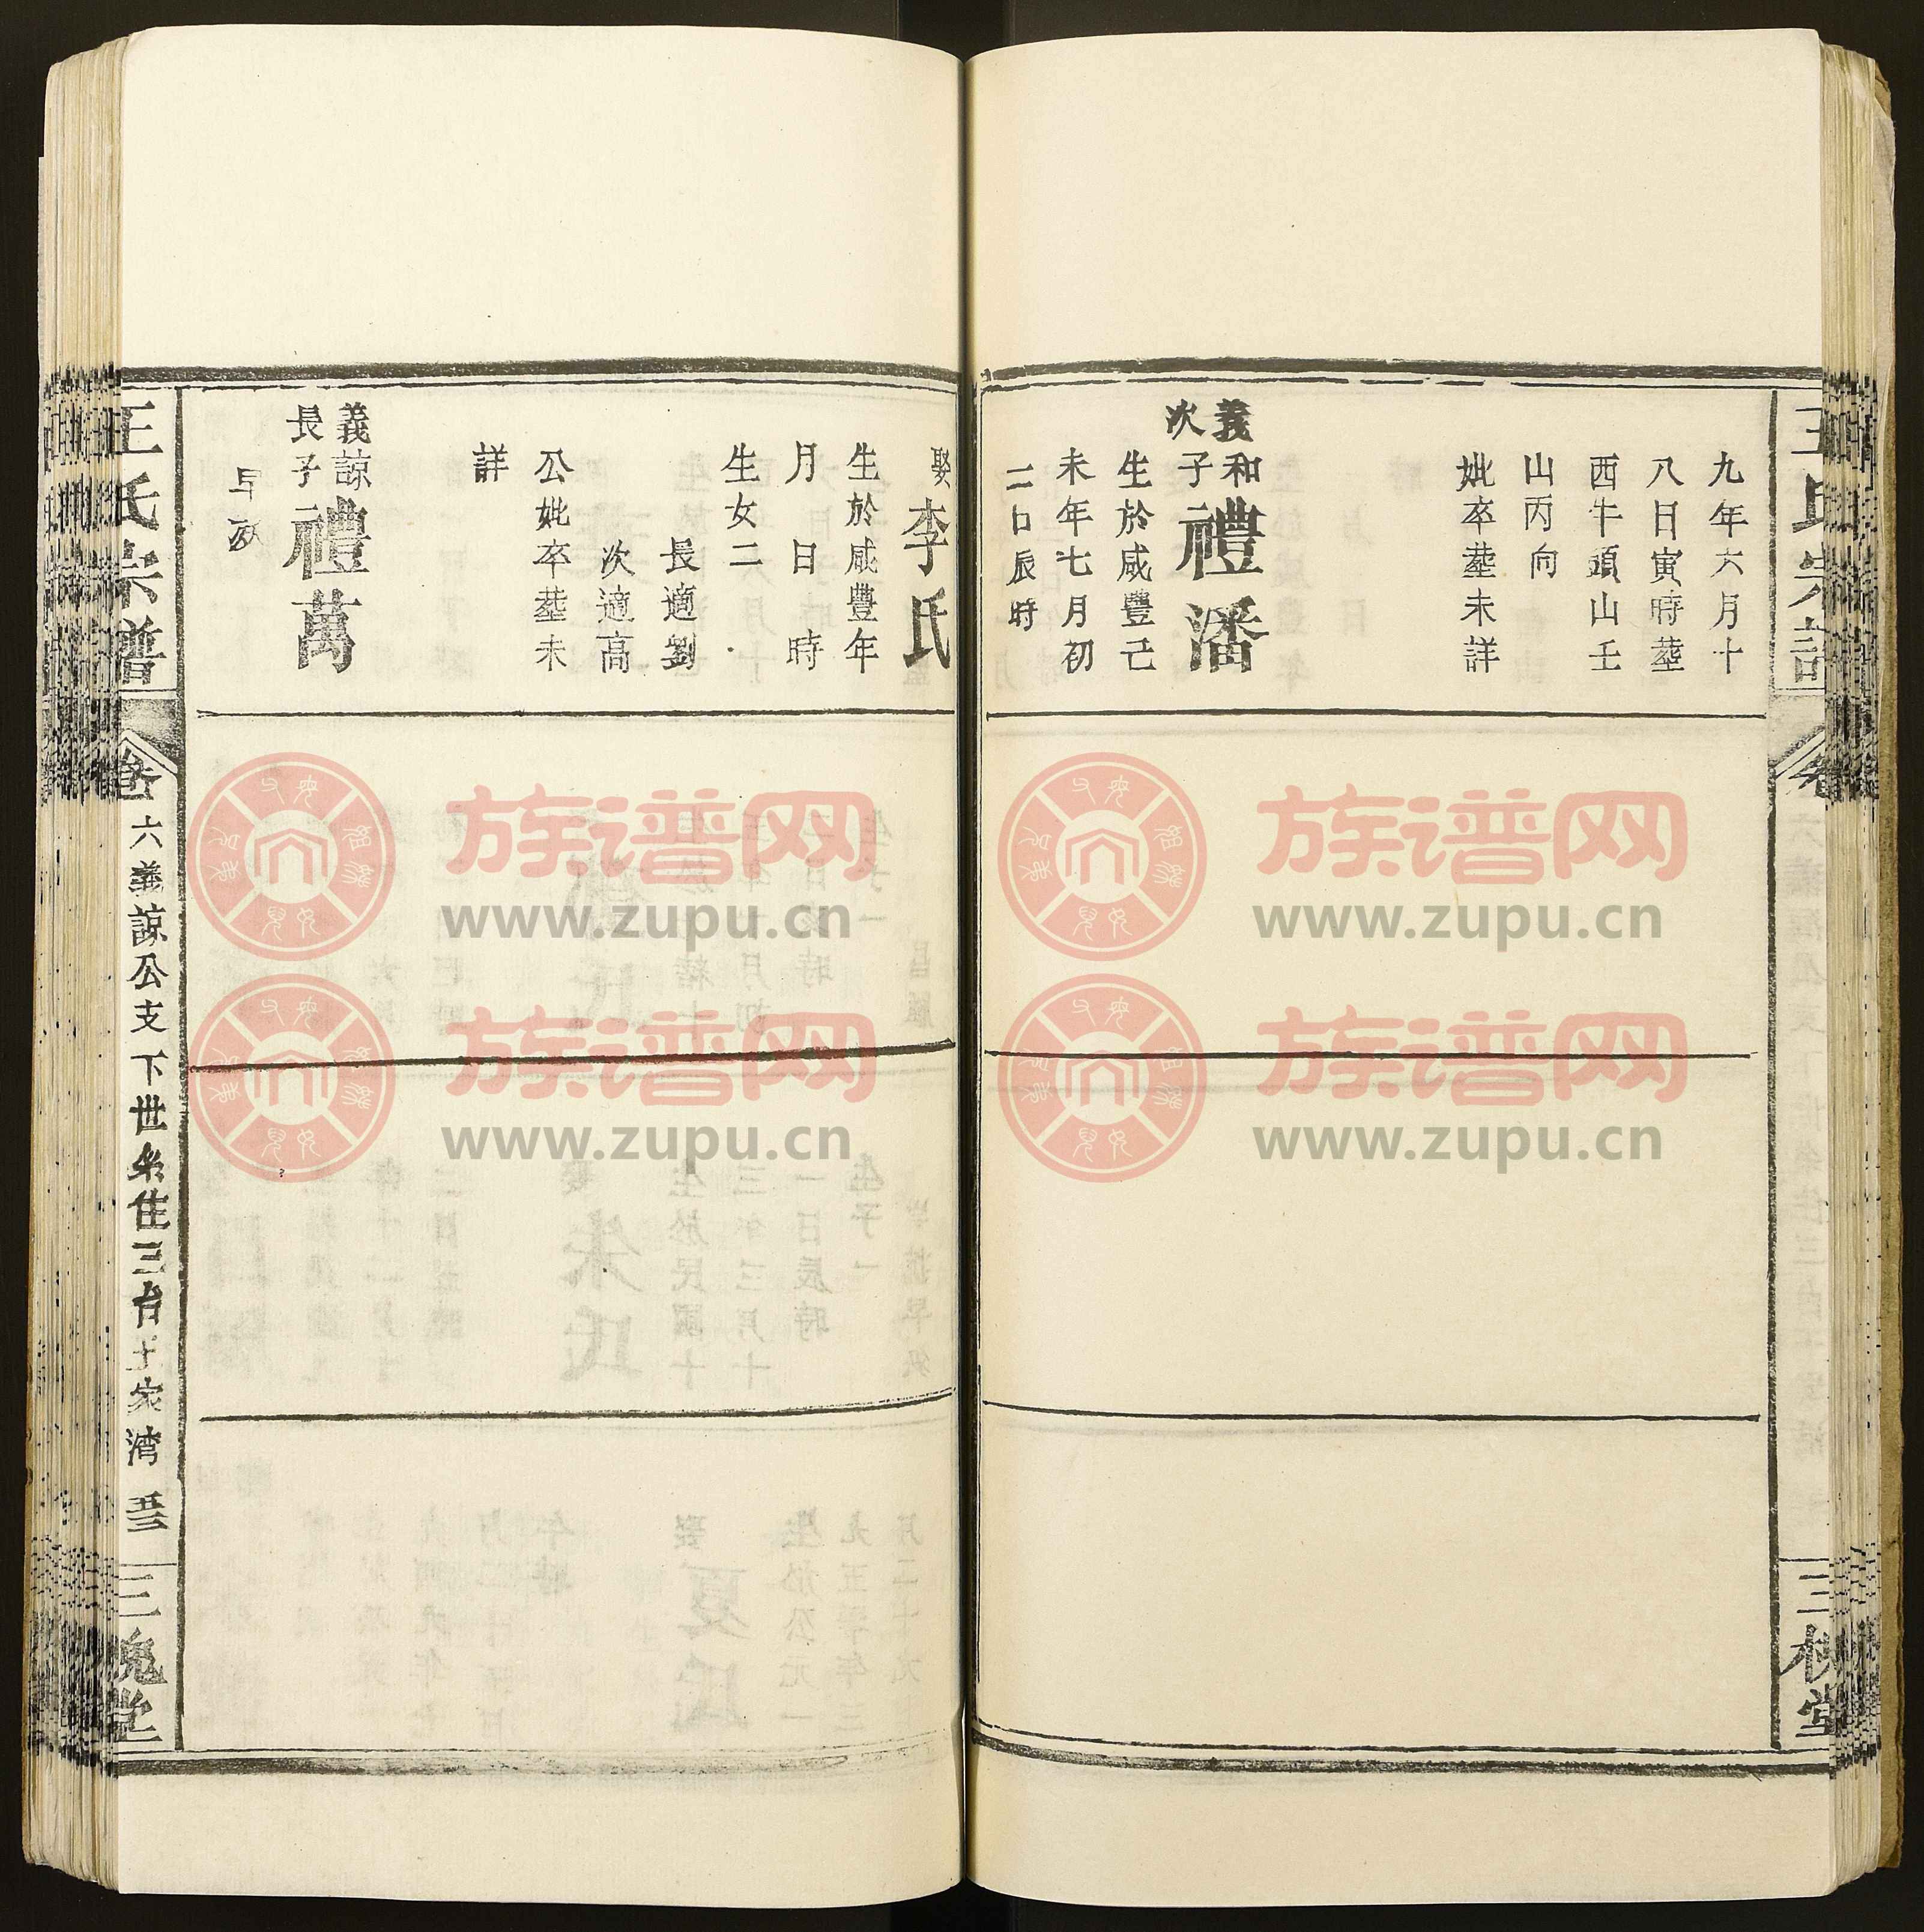 九年六月十
八日寅時塟
酉牛頭山壬
山丙向
妣卒塟未詳
義和
次子
禮潘
生於咸豐己
未年七月初
二日辰時
娶李氏
生於咸豐年
月日時
生女二
長適劉
次適高
公妣卒塟未
詳
義諒
長子
禮萬
早殀
王氏宗譜
卷六義諒公支下世系住三台王家湾
三槐堂
王氏宗譜
三槐堂
族谱网
www.zupu.cn
族谱网
www.zupu.cn
族谱网
www.zupu.cn
族谱网
www.zupu.cn